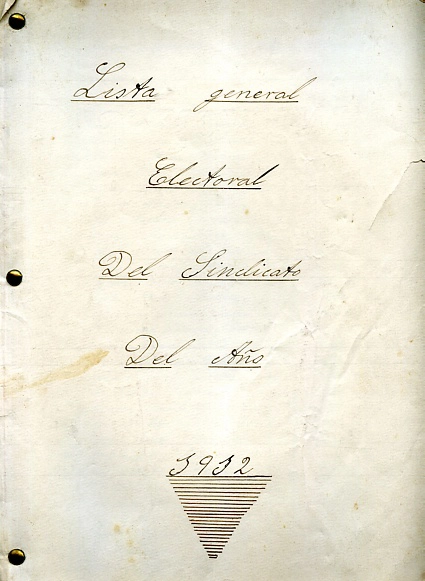 Lista general
Electoral
Del Sindicato
Del Año
1932